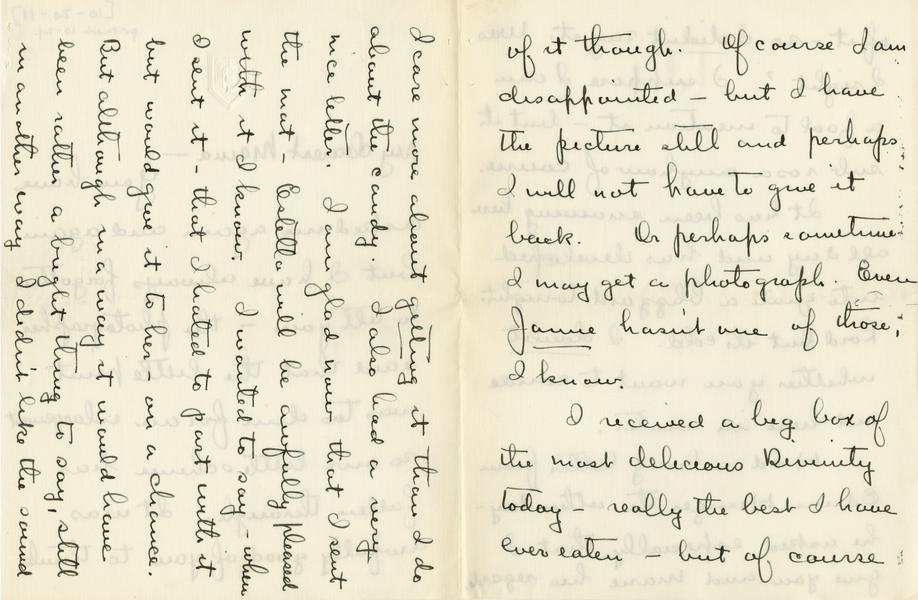 of it though. Of course I am
disappointed – but I have
the picture still and perhaps
I will not have to give it
back. Or perhaps sometime
I may get a photograph. Even
Janne hasn't one of those,
I know.
I received a big box of
the most delicious Divinity
today – really the best I have
ever eaten – but of course
I care more about getting it than I do
about the candy. I also had a very
nice letter. I am glad now – that I sent
the mat, Estella will be awfully pleased
with it I know. I wanted to say – when
I sent it – that I hated to part with it
but would give it to her – on a chance.
But although in a way it would have
been rather a bright thing to say, still
in another way I didn't like the sound